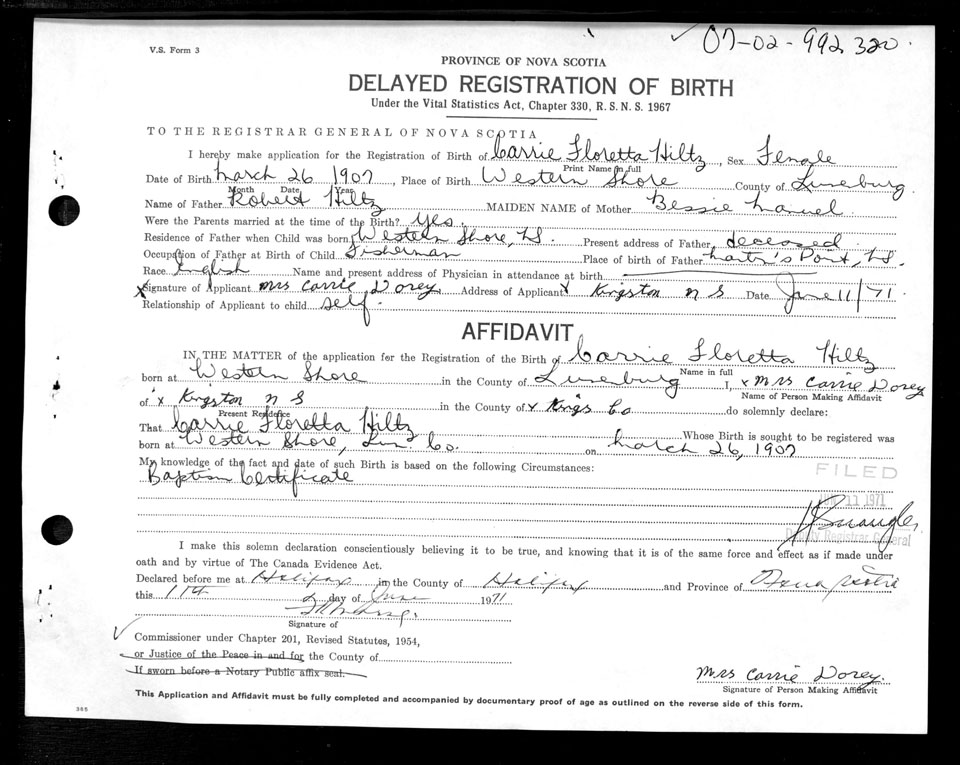 07-02-992320.
V.S. Form 3
PROVINCE OF NOVA SCOTIA
DELAYED REGISTRATION OF BIRTH
Under the Vital Statistics Act, Chapter 330, R.S.N.S. 1967
TO THE REGISTRAR GENERAL OF NOVA SCOTIA
I hereby make application for the Registration of Birth of Carrie Floretta Hiltz, Sex Female
Print Name in full
Date of Birth March 26 1907, Place of Birth Western Shore County of Lunenburg.
Month Date Year
Name of Father Robert Hiltz MAIDEN NAME of Mother Bessie
Were the Parents married at the time of the Birth? Yes.
Residence of Father when Child was born Western Shore, N.S. Present address of Father deceased
Occupation of Father at Birth of Child Fisherman Place of birth of Father Martin's Point, N.S.
Race English Name and present address of Physician in attendance at birth
x Signature of Applicant Mrs Carrie Dorey Address of Applicant x Kingston N S Date June 11/71
Relationship of Applicant to child self.
AFFIDAVIT
IN THE MATTER of the application for the Registration of the Birth of Carrie Floretta Hiltz
Name in full
born at Western Shore in the County of Lunenburg I, x Mrs Carrie Dorey
Name of Person Making Affidavit
of x Kingston N S in the County of x Kings Co do solemnly declare:
Present Residence
That Carrie Floretta Hiltz Whose Birth is sought to be registered was
born at Western Shore, Lun Co. on March 26, 1907
My knowledge of the fact and date of such Birth is based on the following Circumstances:
Baptism Certificate
FILED
JUN 11 1971
Deputy Registrar General
I make this solemn declaration conscientiously believing it to be true, and knowing that it is of the same force and effect as if made under
oath and by virtue of The Canada Evidence Act.
Declared before me at Halifax in the County of Halifax and Province of Nova Scotia
this 11th day of June 1971
Signature of
Commissioner under Chapter 201, Revised Statutes, 1954,
or Justice of the Peace in and for the County of
If sworn before a Notary Public affix seal.
Mrs Carrie Dorey.
Signature of Person Making Affidavit
This Application and Affidavit must be fully completed and accompanied by documentary proof of age as outlined on the reverse side of this form.
365